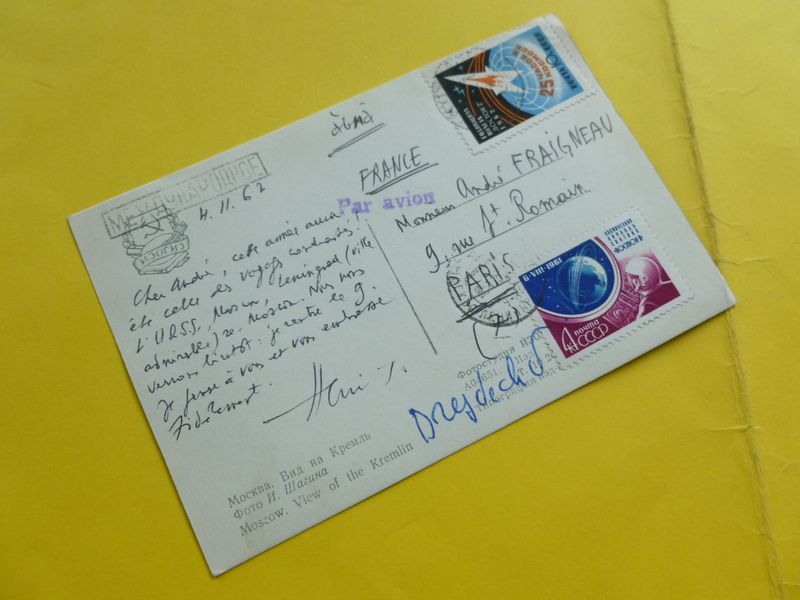 авиа
FRANCE
Par avion
МЕЖДУНАРОДНОЕ
4.11.62
Monsieur André FRAIGNEAU
9, rue St. Romain
PARIS
Cher André, cette année aura
été celle des voyages
L'URSS, Moscou, Leningrad (ville
admirable) re-Moscou. Nous nous
verrons bientôt: je rentre le 9.
Je pense à vous et vous embrasse
fidèlement.
Dresdech 5
25 ЧАСОВ
В КОСМОСЕ
6-VIII-1961
4 ПОЧТА
СССР
Фотостудия
Москва. Вид на Кремль
Фото И. Шагина
Moscow. View of the Kremlin